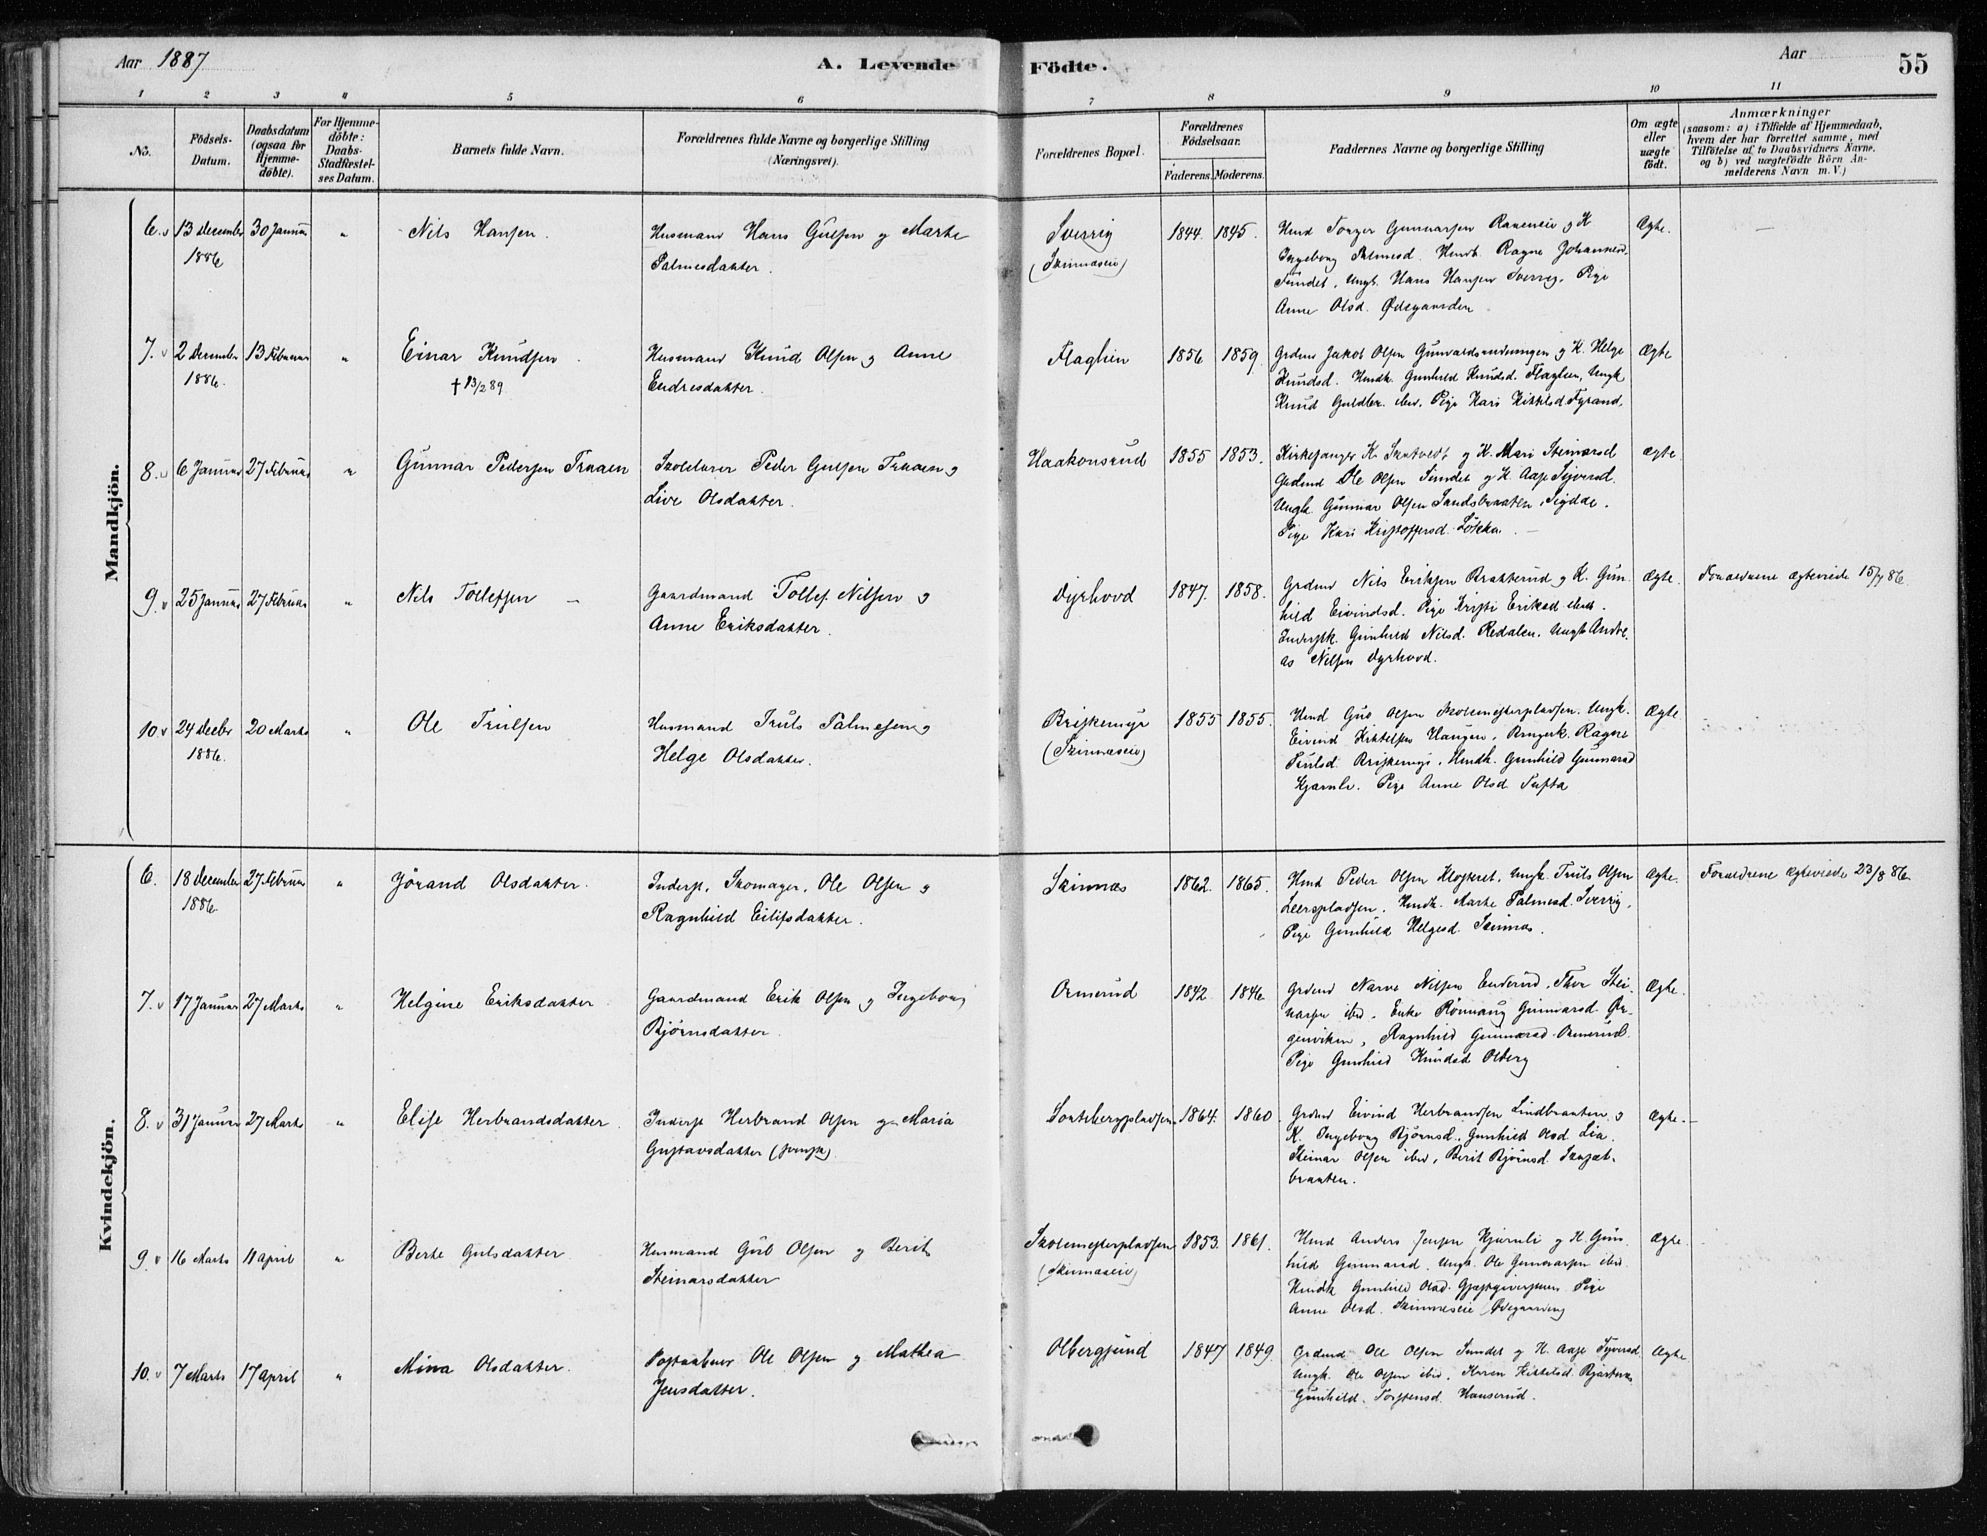 Aar 1887
A. Levende Födte.
Aar
55
1 2 3 4 5 6 7 8 9 10 11
No.
Födsels-Datum.
Daabsdatum (ogsaa for Hjemme-döbte).
For Hjemme-döbte: Daabs-Stadfæstel-ses Datum.
Barnets fulde Navn.
Forældrenes fulde Navne og borgerlige Stilling (Næringsvei).
Forældrenes Bopæl.
Forældrenes Födselsaar.
Faderens. Moderens.
Faddernes Navne og borgerlige Stilling
Om ægte eller uægte födt.
Anmærkninger
(saasom: a) i Tilfælde af Hjemmedaab, hvem der har forrettet samme, med Tilföielse af to Daabsvidners Navne. og b) ved uægtefödte Börn An-melderens Navn m. V.)
Mandkjön.
6. 13 december 1886 30 Januar " Nils Hansen.
Husmand Hans Gulsen og Marte
Palmesdatter.
Sverrig
(Skinnæseie)
1844. 1845.
Ingeborg Palmesd. Hmdk. Ragne Johannesd.
Sundet, Ungk. Hans Hansen Sverrig, Pige
Anne Olsd. Ødegaarden.
Ægte.
7. 2 December 1886. 13 Februar " Einar Knudsen
† 13/2 89.
Husmand Knud Olsen og Anne
Endresdatter.
Flaghin
1856 1859.
Grdmd Jakob Olsen og K. Helge
Knudsd. Hmdk. Gunhild Knudsd. Ungk
Knud ibid. Pige Kari Kittilsd.
Ægte
8. 6 Januar 27 Februar " Gunnar Pedersen Traaen
Skolelærer Peder Gulsen Traaen og
Live Olsdatter.
Haakonsrud
1855 1853.
Kirkesanger K. og K. Mari Steinarsd
Grdmd Ole Olsen Sundet og K. Aase Syversd.
Ungk. Gunnar Olsen Sandsbraaten, Sigdal.
Pige Kari Kristoffersd. Lökka.
Ægte
9. 25 Januar 27 Februar " Nils Tollefsen
Gaardmand Tollef Nilsen og
Anne Eriksdatter.
Dyrhovd
1847. 1858.
Grdmd Nils Eriksen Bratterud og K. Gun-
hild Eivindsd. Pige Kristi Eriksd ibid.
Inderstk. Gunhild Nilsd. Redalen. Ungk Andre-
as Nilsen Dyrhovd.
Ægte.
Forældrene ægteviede 15/7 86.
10. 24 Decebr 1886. 20 Marts " Ole Trulsen
Husmand Truls Palmesen og
Helge Olsdatter.
Briskemyr
(Skinnæseie)
1855 1855.
Hmd Gul Olsen Skolemesterpladsen. Ungk.
Eivind Kittelsen Haugen, Brugerk. Ragne
Trulsd. Briskemyr. Hmdk. Gunhild Gunnarsd
Hjarnli. Pige Anne Olsd Tufta
Ægte
Kvindekjön.
6. 18 December 1886 27 Februar " Jörand Olsdatter.
Inderst, Skomager, Ole Olsen og
Ragnhild Eilifsdatter.
Skinnæs
1862. 1865.
Hmd Peder Olsen Klosteret, Ungk. Truls Olsen
Leerspladsen, Hmdk. Marte Palmesd. Sverrig,
Pige Gunhild Helgesd. Skinnæs.
Ægte.
Forældrene ægteviede 23/8 86.
7. 17 Januar 27 Marts " Helgine Eriksdatter
Gaardmand Erik Olsen og Ingeborg
Björnsdatter.
Ormerud
1842 1846
Grdmd Narve Nilsen Enderud, Thor Stei-
narsen ibid. Enke Rönnaug Gunnarsd.
Ragnhild Gunnarsd Ormerud.
Pige Gunhild Knudsd Olberg
Ægte.
8. 31 Januar 27 Marts " Elise Herbrandsdatter.
Inderst Herbrand Olsen og Maria
Gustavsdatter (svensk).
Sontebergpladsen
1864. 1860.
Grdmd Eivind Herbrandsen Lindbraaten og
K. Ingeborg Björnsd., Gunhild Olsd. Lia.
Steinar Olsen ibid, Berit Björnsd.
braaten.
Ægte.
9. 16 Marts 11 April " Berte Gulsdatter
Husmand Gul Olsen og Berit
Steinarsdatter
Skolemesterpladsen
(Skinnæseie)
1853. 1861.
Hmd Anders Jensen Hjarnli og K. Gun-
hild Gunnarsd. Ungk. Ole Gunnarsen ibid.
Hmdk Gunhild Olsd. Pige
Anne Olsd. Skinnæseie
Ægte
10. 7 Marts 17 April " Mina Olsdatter.
Postaabner Ole Olsen og Mathea
Jensdatter.
Olbergsund
1847 1849.
Grdmd Ole Olsen Sundet og K. Aase Syversd
Ungk. Ole Olsen ibid, Karen Kittelsd
Gunhild Torstensd. Hanserud.
Ægte